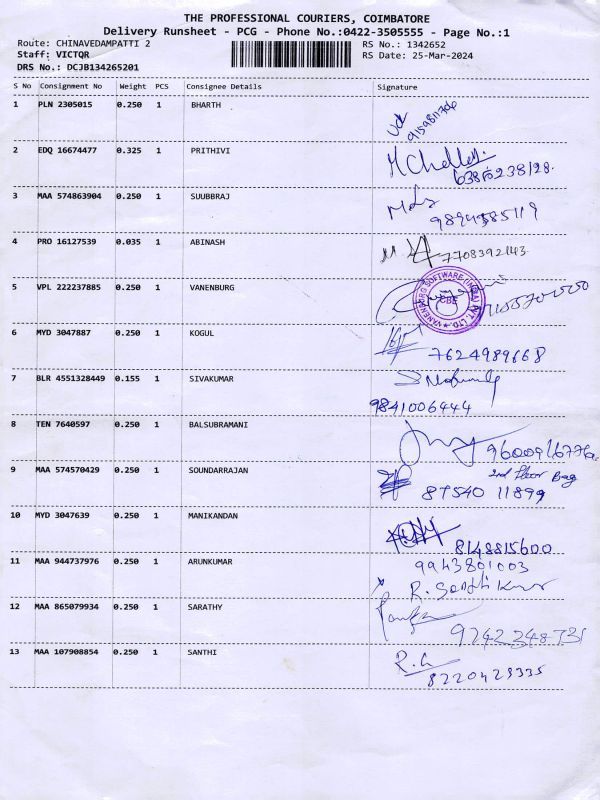 THE PROFESSIONAL COURIERS, COIMBATORE
Delivery Runsheet - PCG - Phone No.:0422-3505555 - Page No.:1
Route: CHINAVEDAMPATTI 2 RS No.: 1342652
Staff: VICTOR RS Date: 25-Mar-2024
DRS No.: DCJB134265201
S No Consignment No Weight PCS Consignee Details Signature
1 PLN 2305015 0.250 1 BHARTH
2 EDQ 16674477 0.325 1 PRITHIVI
6385238128.
3 MAA 574863904 0.250 1 SUUBBRAJ
9894385119
4 PRO 16127539 0.035 1 ABINASH 7708392143
5 VPL 222237885 0.250 1 VANENBURG
VANENBURG SOFTWARE (INDIA) PVT. LTD. CBE
6 MYD 3047887 0.250 1 KOGUL
7624989668
7 BLR 4551328449 0.155 1 SIVAKUMAR
9841006444
8 TEN 7640597 0.250 1 BALSUBRAMANI
9 MAA 574570429 0.250 1 SOUNDARRAJAN 2nd floor Bag
87540 11899
10 MYD 3047639 0.250 1 MANIKANDAN
8148815600
11 MAA 944737976 0.250 1 ARUNKUMAR 9943801003
12 MAA 865079934 0.250 1 SARATHY
9742348731
13 MAA 107908854 0.250 1 SANTHI
8220429335